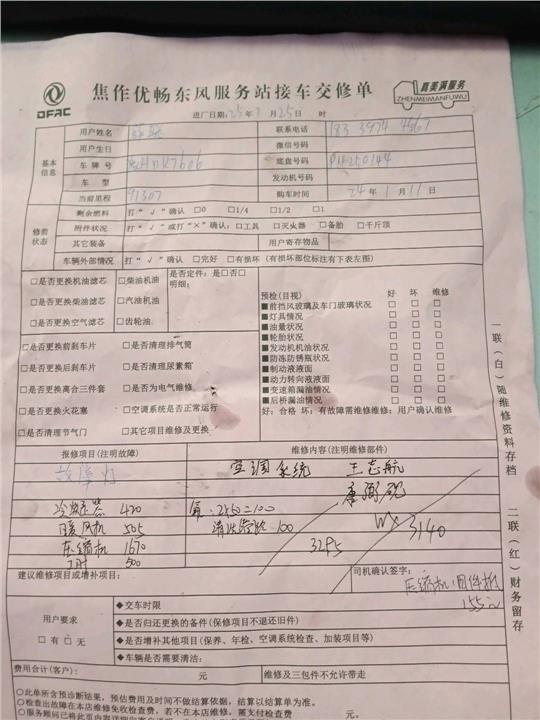 DFAC
焦作优畅东风服务站接车交修单
真美满服务
ZHENMEIMANFUWU
进厂日期:25年 月25日 时
基本信息
用户姓名
联系电话 183 3974 4567
用户生日
微信号码
车牌号
底盘号码
车 型
发动机号码
当前里程 91307
购车时间 24年1月11日
修前状态
剩余燃料 打“√”确认 □0 □1/4 □1/2 □1
附件状况 打“√”或打“×”确认:□工具 □灭火器 □备胎 □千斤顶
其它装备
用户寄存物品
车辆外部情况 打“√”确认 □完好 □有损坏(有损坏部位标注有下表左图)
□是否更换机油滤芯 □柴油机油
□是否更换柴油滤芯 □汽油机油
□是否更换空气滤芯 □齿轮油
是否定件:是□否□
明细:
□是否更换前刹车片 □是否清理排气筒
□是否更换后刹车片 □是否清理尿素箱
□是否更换离合三件套 □是否为电气维修
□是否更换火花塞 □空调系统是否正常运行
□是否清理节气门 □其它项目维修及更换
预检(目视) 好 坏 维修
■前挡风玻璃及车门玻璃状况 □ □ □
■灯具情况 □ □ □
■油量状况 □ □ □
■轮胎状况 □ □ □
■发动机机油状况 □ □ □
■防冻防锈瓶状况 □ □ □
■制动液液面 □ □ □
■动力转向液液面 □ □ □
■变速箱漏油情况 □ □ □
■后桥漏油情况 □ □ □
好:合格 坏:有故障需维修维修:用户确认维修
报修项目(注明故障)
维修内容(注明维修部件)
故障灯
空调系统 王志航
冷凝器 420
氟:250=100
暖风机 505
清洗管路 100
3140
压缩机 1670
3295
工时 500
建议维修项目或增补项目:
司机确认签字:
压缩机旧件抵
155元
用户要求
□有□无
◆交车时限
◆是否归还更换的备件(保修项目不退还旧件)
◆是否增补其他项目(保养、年检、空调系统检查、加装项目等)
◆车辆是否需要清洁:
费用合计(客户): 元 维修及三包件不允许带走
○此单所含预诊断结果,预估费用及时间不做结算依据,结算以结算单为准。
○检查出故障在本店维修免收检查费,若不在本店维修,需支付检查费 元。
一联(白)随维修资料存档
二联(红)财务留存